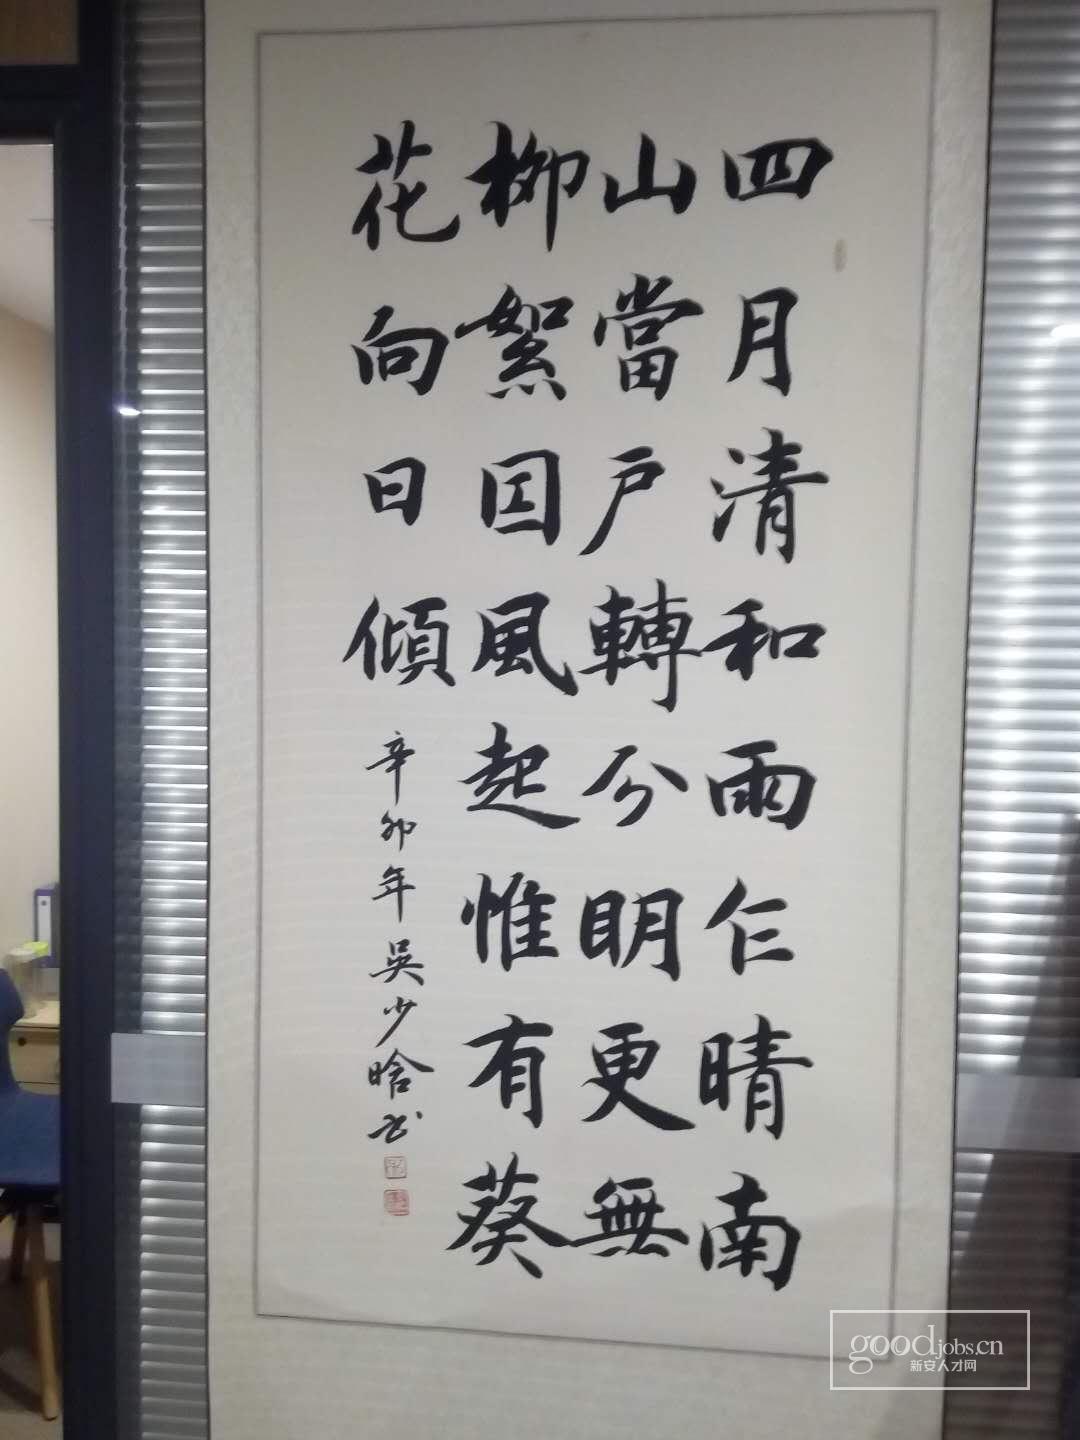 四月清和雨乍晴南
山當户轉分明更無
柳絮因風起惟有葵
花向日傾
辛卯年吳少晗书
goodjobs.cn
新安人才网